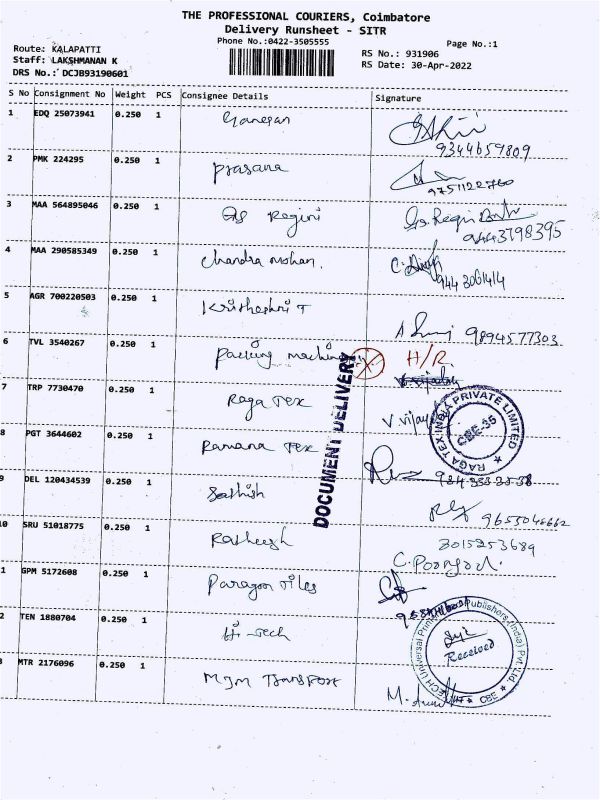 THE PROFESSIONAL COURIERS, Coimbatore
Delivery Runsheet - SITR
Phone No.:0422-3505555
Page No.:1
Route: KALAPATTI
Staff: LAKSHMANAN K
DRS No.: DCJB93190601
RS No.: 931906
RS Date: 30-Apr-2022
S No Consignment No Weight PCS Consignee Details Signature
1 EDQ 25073941 0.250 1 Ganesan
9344659809
2 PMK 224295 0.250 1 Prasana
9751122760
3 MAA 564895046 0.250 1 Regini
9443798395
4 MAA 290585349 0.250 1 Chandra mohan.
944 3061414
5 AGR 700220503 0.250 1 T
9894577303
6 TVL 3540267 0.250 1 Packing
H/R
DOCUMENT DELIVERY
7 TRP 7730470 0.250 1 Raga Tex
V vijay
RAGA TEX INDIA PRIVATE LIMITED
CBE-35
8 PGT 3644602 0.250 1 Ramana Tex
9 DEL 120434539 0.250 1 Sathish
10 SRU 51018775 0.250 1 Ratheesh
GPM 5172608 0.250 1 Paragon Tiles
TEN 1880704 0.250 1 Hi-Tech
Received
CBE
MTR 2176096 0.250 1 MJM Transport
M.